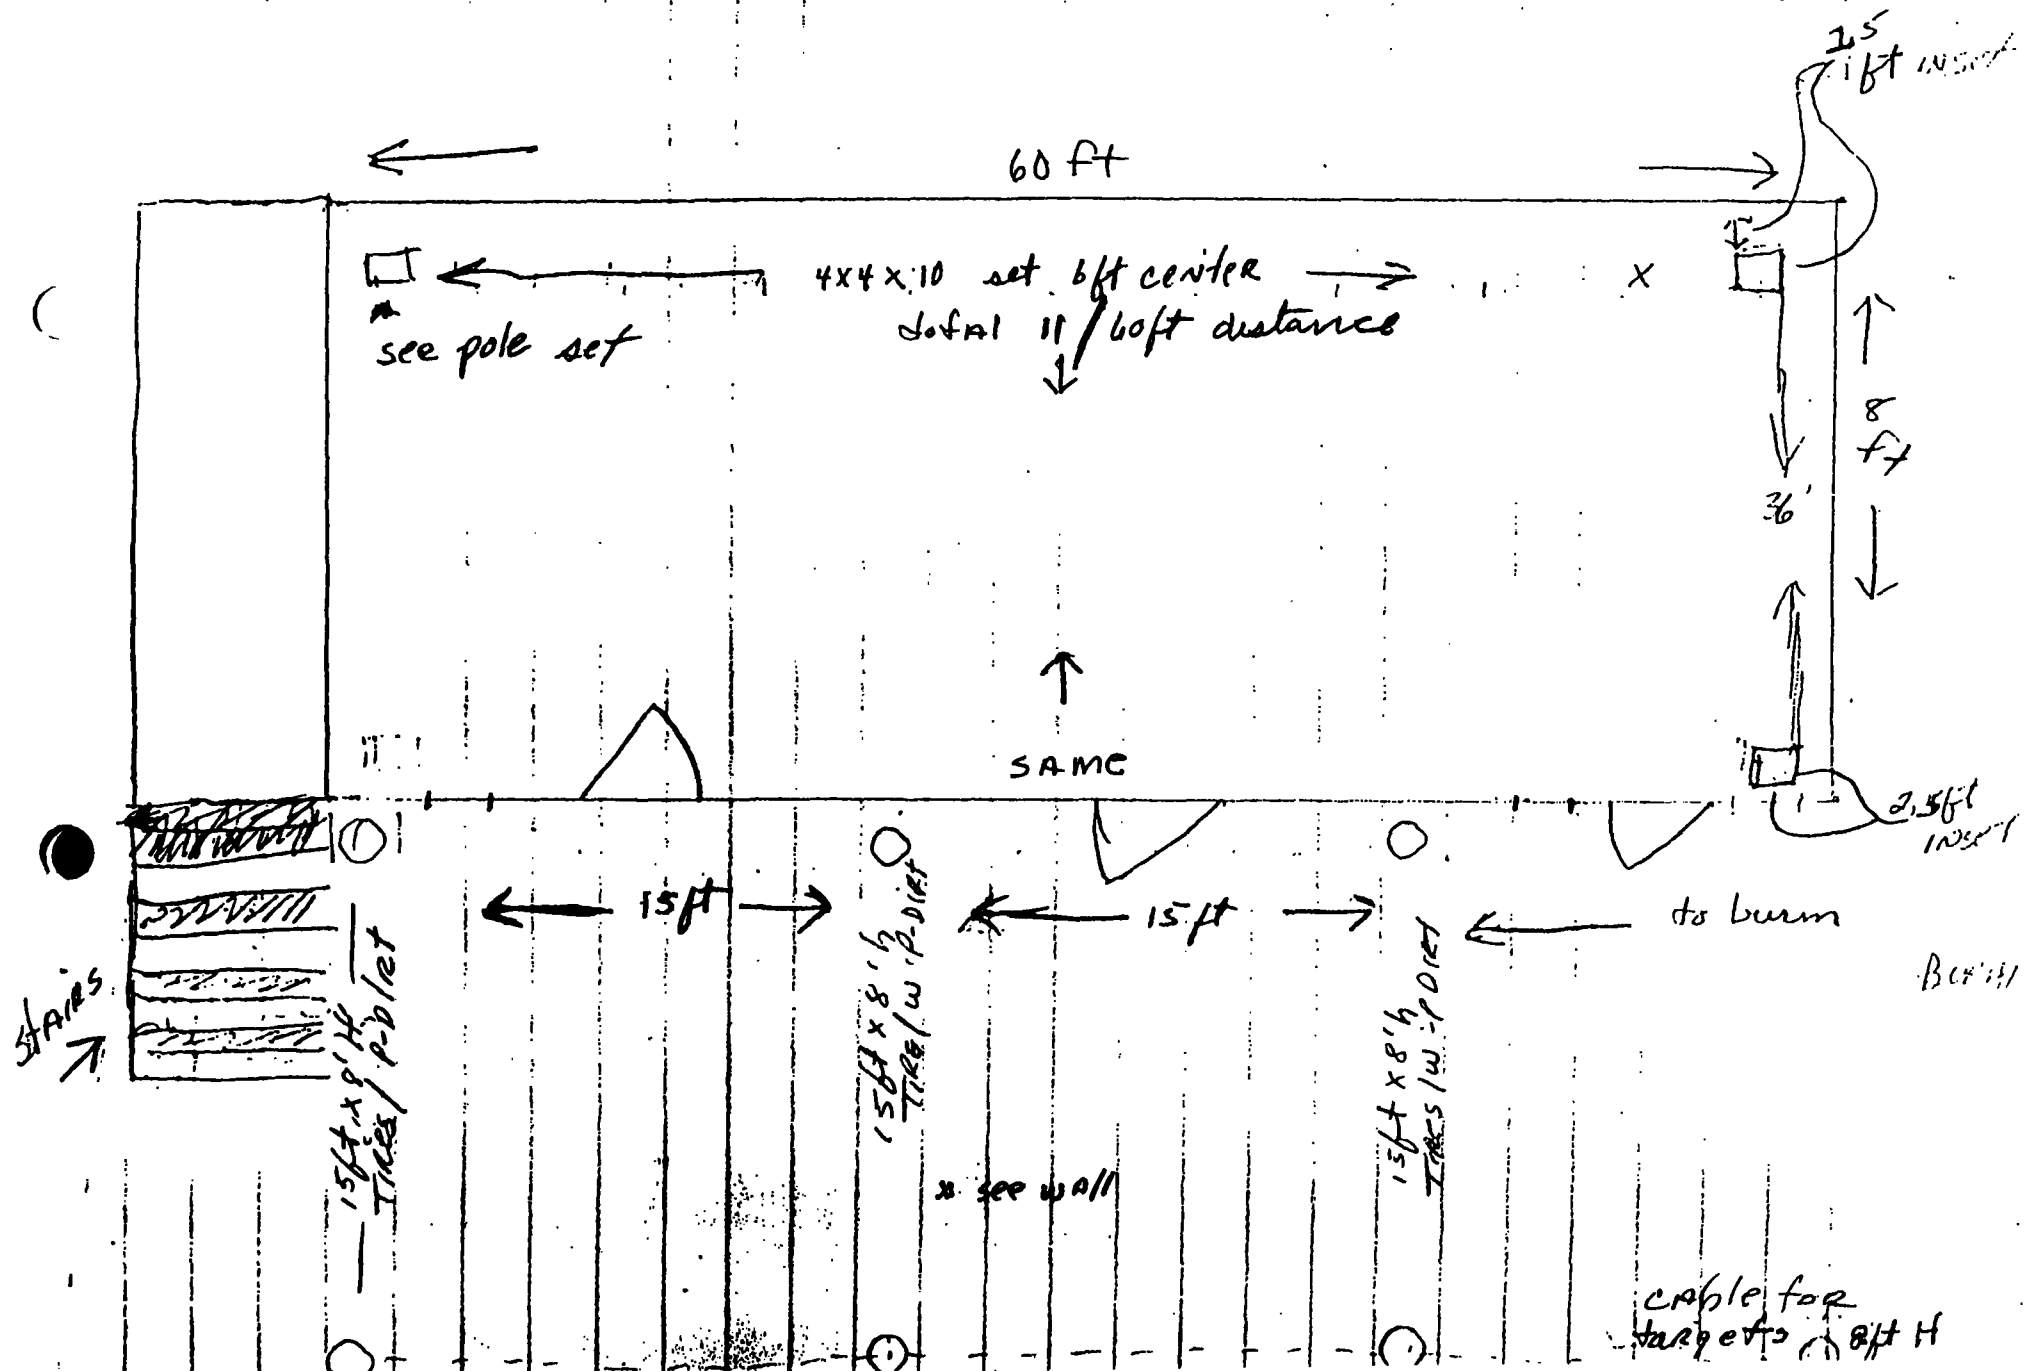 1,5
1ft INSET
60 ft
4x4x10 set 6ft center
total 11/60ft distance
x
see pole set
8
ft
36'
SAME
2,5ft
INSET
15ft
15 ft
to burm
stairs
15ft x 8' H
Tires/
15ft x 8'h
TIRE/w P-DIRT
15ft x 8'h
TIRES/w -P DIRT
* see wall
cable for
targets 8ft H